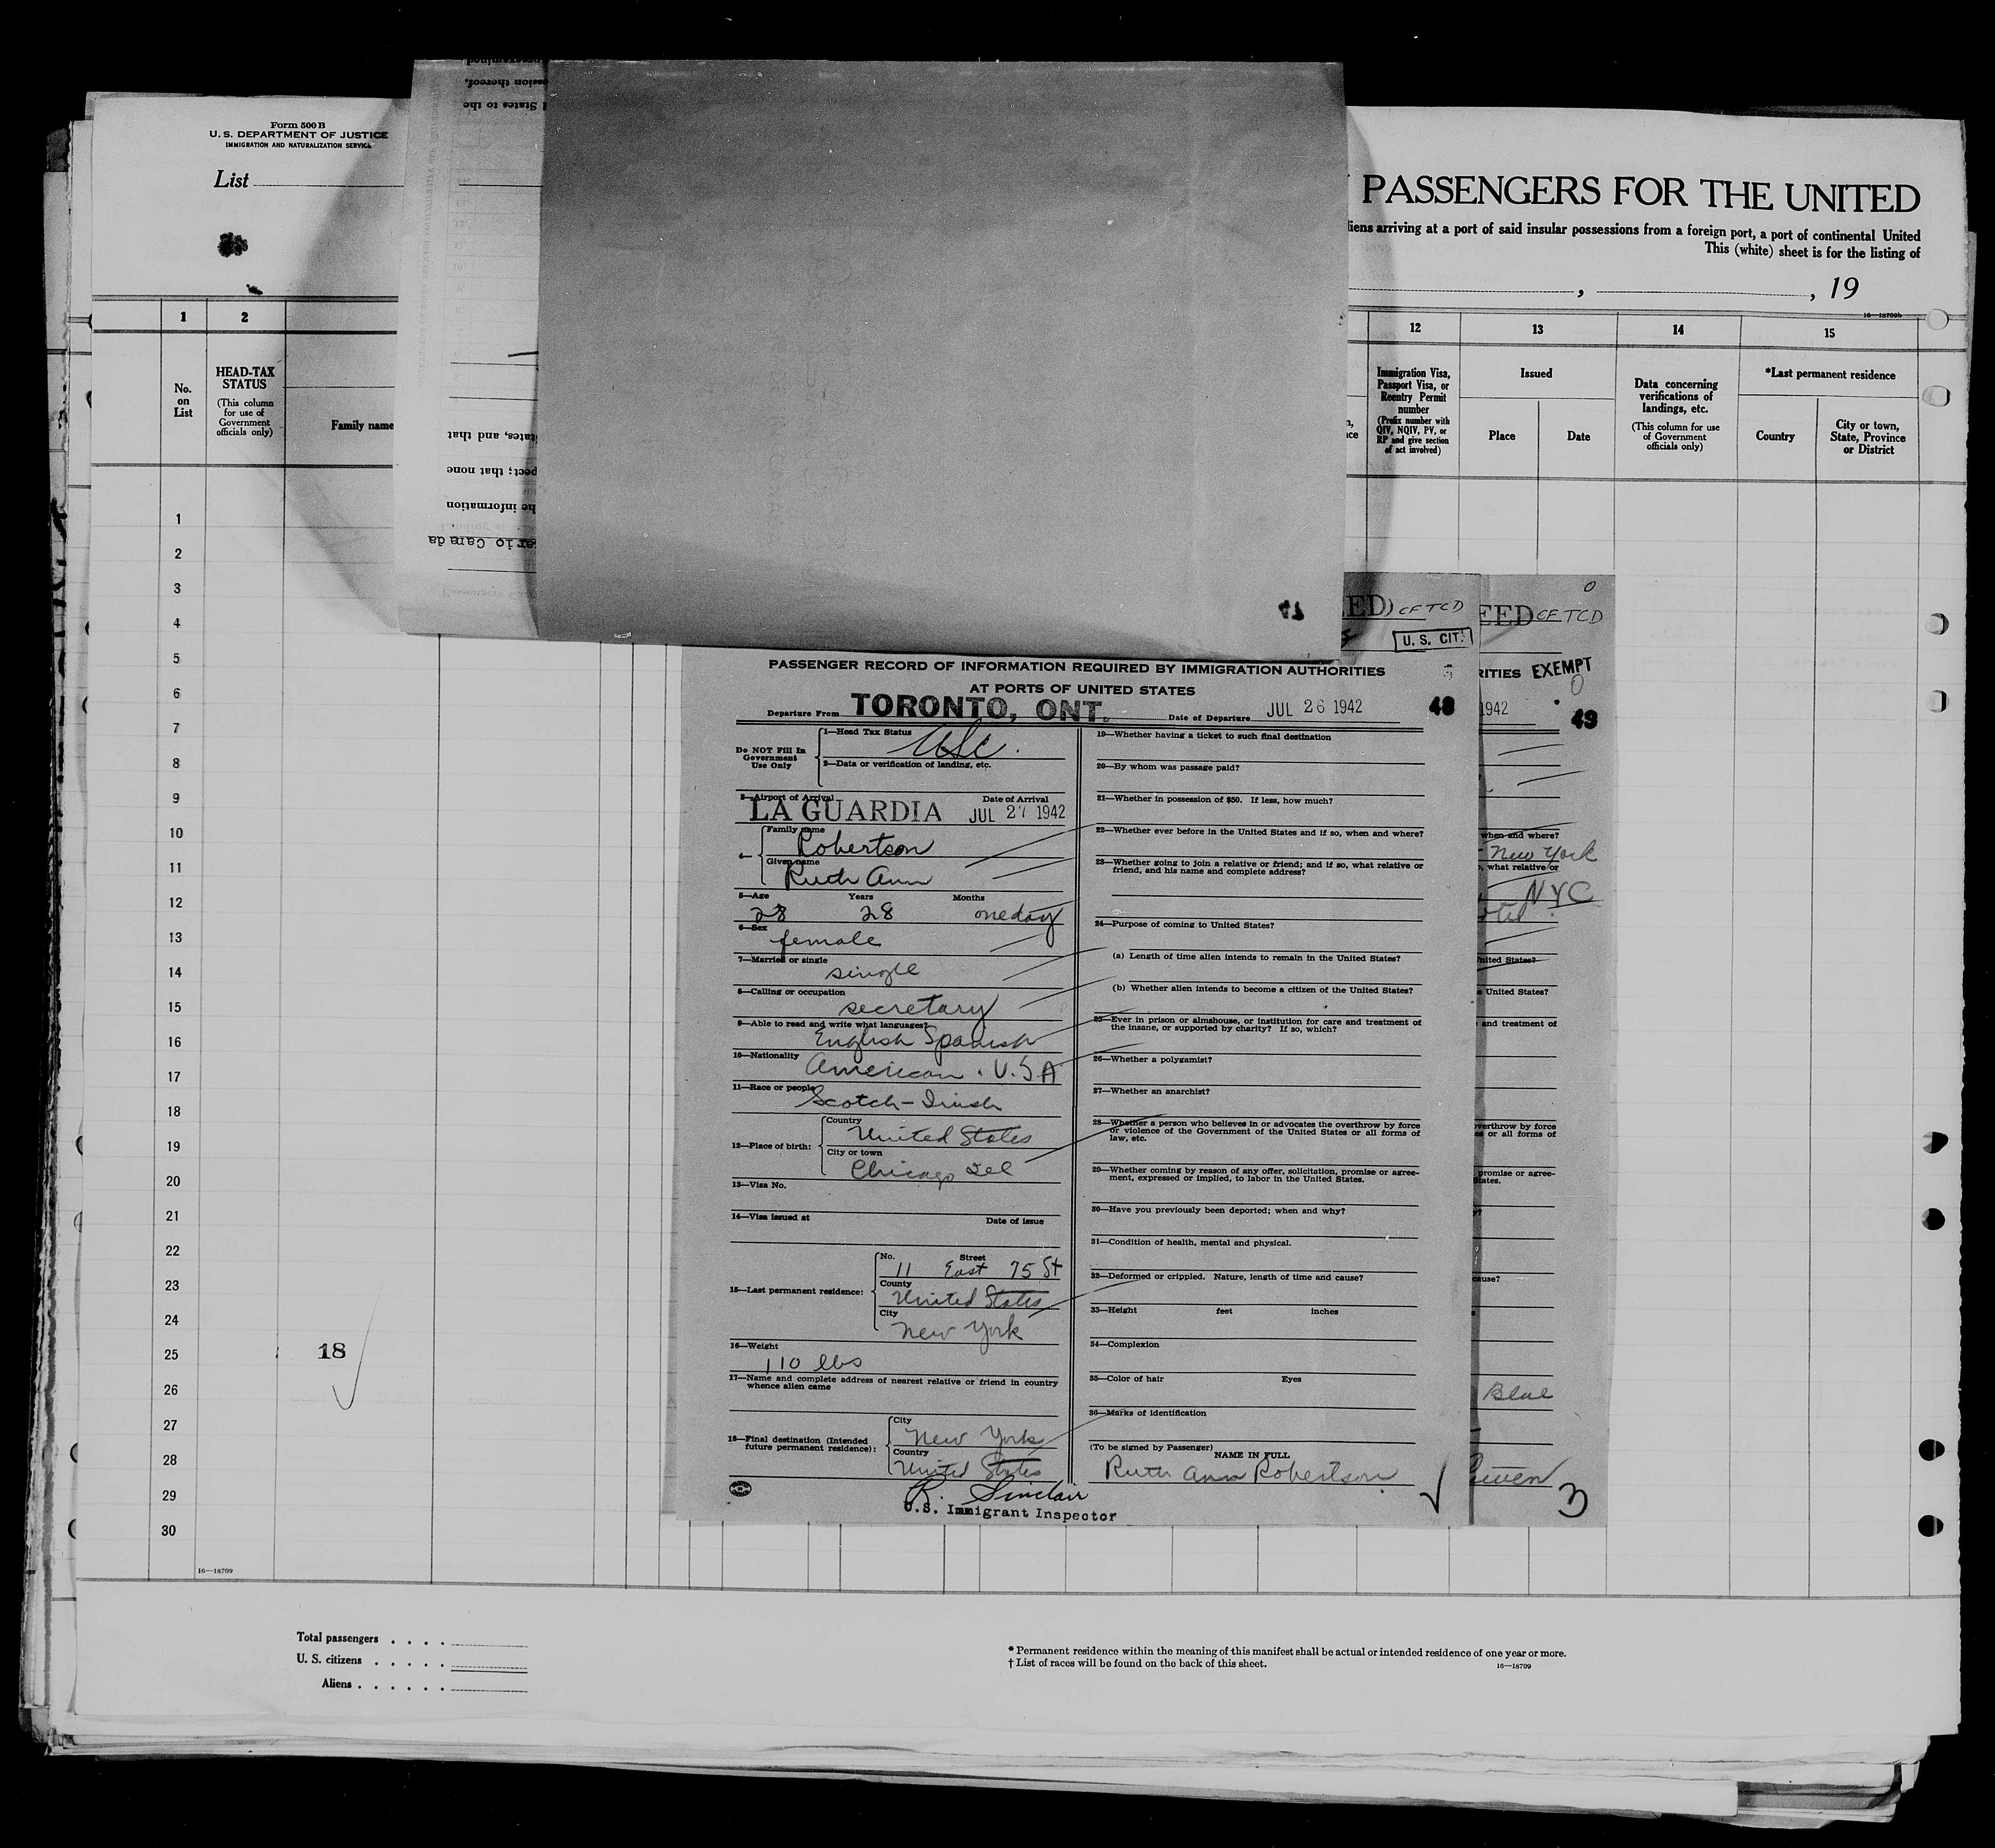 Form 500 B
U. S. DEPARTMENT OF JUSTICE
IMMIGRATION AND NATURALIZATION SERVICE
List
PASSENGERS FOR THE UNITED
liens arriving at a port of said insular possessions from a foreign port, a port of continental United
This (white) sheet is for the listing of
, , 19
16—18709b
1 2 12 13 14 15
No. on List
HEAD-TAX STATUS
(This column for use of Government officials only)
Family name
Immigration Visa, Passport Visa, or Reentry Permit number
(Prefix number with QIV, NQIV, PV, or RP and give section of act involved)
Issued
Place Date
Data concerning verifications of landings, etc.
(This column for use of Government officials only)
*Last permanent residence
Country
City or town, State, Province or District
ssion thereof,
d States to the
tates, and that
pect; that none
he information
ario Canada
1
2
3
4
5
6
7
8
9
10
11
12
13
14
15
16
17
18
19
20
21
22
23
24
25
26
27
28
29
30
18
16—18709
ED) CFTCD
U. S. CIT.
PASSENGER RECORD OF INFORMATION REQUIRED BY IMMIGRATION AUTHORITIES
AT PORTS OF UNITED STATES
Departure From TORONTO, ONT. Date of Departure JUL 26 1942 48
Do NOT Fill In Government Use Only
1—Head Tax Status USC.
2—Data or verification of landing, etc.
3—Airport of Arrival Date of Arrival
LA GUARDIA JUL 27 1942
4—
Family name
Robertson
Given name
Ruth Ann
5—Age Years Months
28 28 one day
6—Sex
female
7—Married or single
single
8—Calling or occupation
secretary
9—Able to read and write what languages?
English Spanish
10—Nationality
American . U.S.A
11—Race or people
Scotch-Irish
12—Place of birth:
Country
United States
City or town
Chicago Ill
13—Visa No.
14—Visa issued at Date of issue
15—Last permanent residence:
No. Street
11 East 75 St
County
United States
City
New York
16—Weight
110 lbs
17—Name and complete address of nearest relative or friend in country
whence alien came
18—Final destination (Intended
future permanent residence):
City
New York
Country
United States
R. Sinclair
U.S. Immigrant Inspector
19—Whether having a ticket to such final destination
20—By whom was passage paid?
21—Whether in possession of $50. If less, how much?
22—Whether ever before in the United States and if so, when and where?
23—Whether going to join a relative or friend; and if so, what relative or
friend, and his name and complete address?
24—Purpose of coming to United States?
(a) Length of time alien intends to remain in the United States?
(b) Whether alien intends to become a citizen of the United States?
25—Ever in prison or almshouse, or institution for care and treatment of
the insane, or supported by charity? If so, which?
26—Whether a polygamist?
27—Whether an anarchist?
28—Whether a person who believes in or advocates the overthrow by force
or violence of the Government of the United States or all forms of
law, etc.
29—Whether coming by reason of any offer, solicitation, promise or agree-
ment, expressed or implied, to labor in the United States.
30—Have you previously been deported; when and why?
31—Condition of health, mental and physical.
32—Deformed or crippled. Nature, length of time and cause?
33—Height feet inches
34—Complexion
35—Color of hair Eyes
36—Marks of identification
(To be signed by Passenger) NAME IN FULL
Ruth Ann Robertson
0
EED CFTCD
RITIES EXEMPT
0
1942
49
when and where?
New York
, what relative or
NYC
nited States?
e United States?
and treatment of
overthrow by force
es or all forms of
promise or agree-
States.
cause?
Blue
3
Total passengers . . . .
U. S. citizens . . . . .
Aliens . . . . . .
* Permanent residence within the meaning of this manifest shall be actual or intended residence of one year or more.
† List of races will be found on the back of this sheet. 16—18709